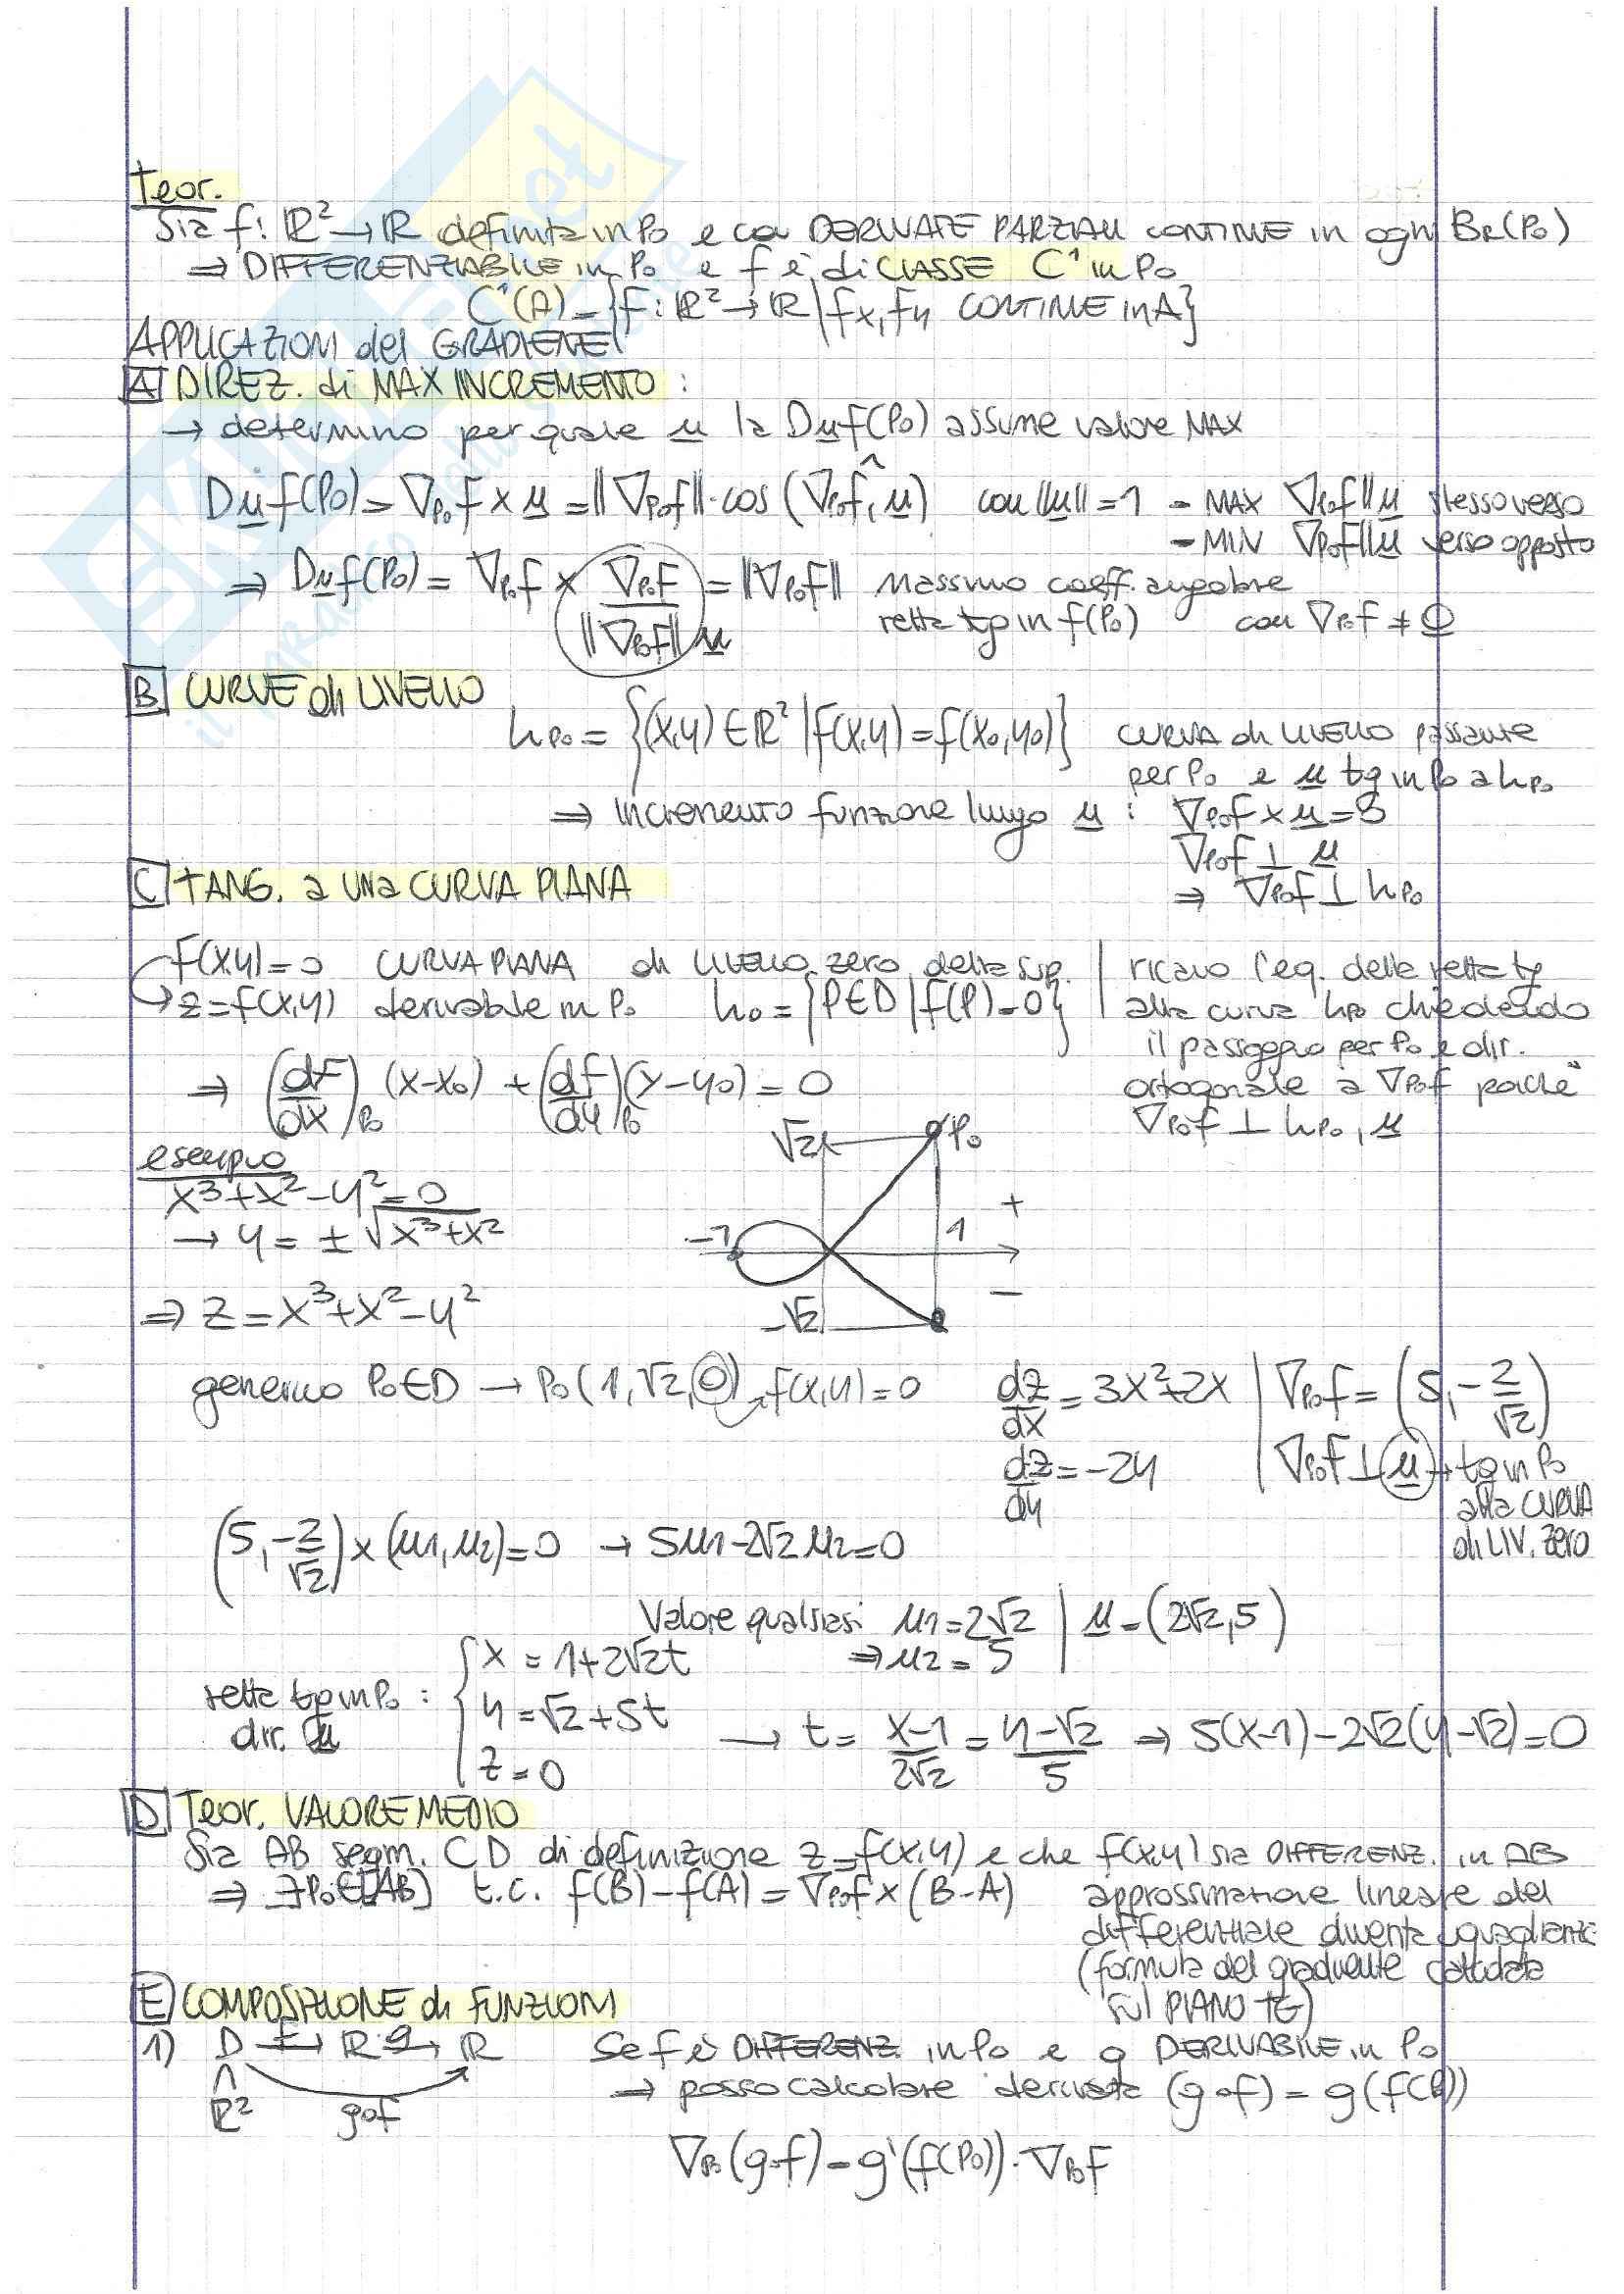 Teor.
Sia f: ℝ² → ℝ definita in P₀ e con DERIVATE PARZIALI CONTINUE in ogni B_R(P₀)
⇒ DIFFERENZIABILE in P₀ e f è di CLASSE C¹ in P₀
C¹(A) = {f: ℝ² → ℝ | fx, fy CONTINUE in A}
APPLICAZIONI del GRADIENTE
[A] DIREZ. di MAX INCREMENTO:
→ determino per quale u la Duf(P₀) assume valore MAX
Duf(P₀) = ∇P₀f × u = ||∇P₀f|| · cos (∇P₀f, u) con ||u|| = 1 - MAX ∇P₀f || u stesso verso
- MIN ∇P₀f || u verso opposto
⇒ Duf(P₀) = ∇P₀f × ∇P₀f / ||∇P₀f|| u = ||∇P₀f|| massimo coeff. angolare
retta tg in f(P₀) con ∇P₀f ≠ 0
[B] CURVE di LIVELLO
hP₀ = {(x,y) ∈ ℝ² | f(x,y) = f(x₀,y₀)} CURVA di LIVELLO passante
per P₀ e u tg in P₀ a hP₀
⇒ Incremento funzione lungo u : ∇P₀f × u = 0
∇P₀f ⊥ u
⇒ ∇P₀f ⊥ hP₀
[C] TANG. a una CURVA PIANA
f(x,y) = 0 CURVA PIANA di LIVELLO zero della sup. | ricavo l'eq. della retta tg
z = f(x,y) derivabile in P₀ h₀ = {P∈D | f(P) = 0} | alla curva hP₀ chiedendo
il passaggio per P₀ e dir.
⇒ (df/dx)P₀ (x-x₀) + (df/dy)P₀ (y-y₀) = 0 ortogonale a ∇P₀f poiché
∇P₀f ⊥ hP₀, u
esempio
x³+x²-y² = 0
→ y = ± √x³+x²
⇒ z = x³+x²-y²
√2 P₀
+
-1 1
-
-√2
generico P₀∈D → P₀(1,√2,0) f(x,y) = 0 dz/dx = 3x²+2x | ∇P₀f = (5, -2/√2)
dz/dy = -2y | ∇P₀f ⊥ u → tg in P₀
alla CURVA
di LIV. zero
(5, -2/√2) × (u1, u2) = 0 → 5u1 - 2√2 u2 = 0
Valore qualsiasi u1 = 2√2 | u = (2√2, 5)
⇒ u2 = 5
retta tg in P₀ : { x = 1+2√2t
dir. u y = √2+5t → t = x-1/2√2 = y-√2/5 ⇒ 5(x-1) - 2√2(y-√2) = 0
z = 0
[D] Teor. VALORE MEDIO
Sia AB segm. C D di definizione z = f(x,y) e che f(x,y) sia DIFFERENZ. in AB
⇒ ∃P₀∈[AB] t.c. f(B) - f(A) = ∇P₀f × (B-A) approssimazione lineare del
differenziale diventa uguaglianza
(formula del gradiente calcolata
sul PIANO TG)
[E] COMPOSIZIONE di FUNZIONI
1) D f→ ℝ g→ ℝ Se f è DIFFERENZ. in P₀ e g DERIVABILE in P₀
ℝ² g∘f ⇒ posso calcolare derivata (g∘f) = g(f(P₀))
∇P₀(g∘f) = g'(f(P₀)) · ∇P₀f